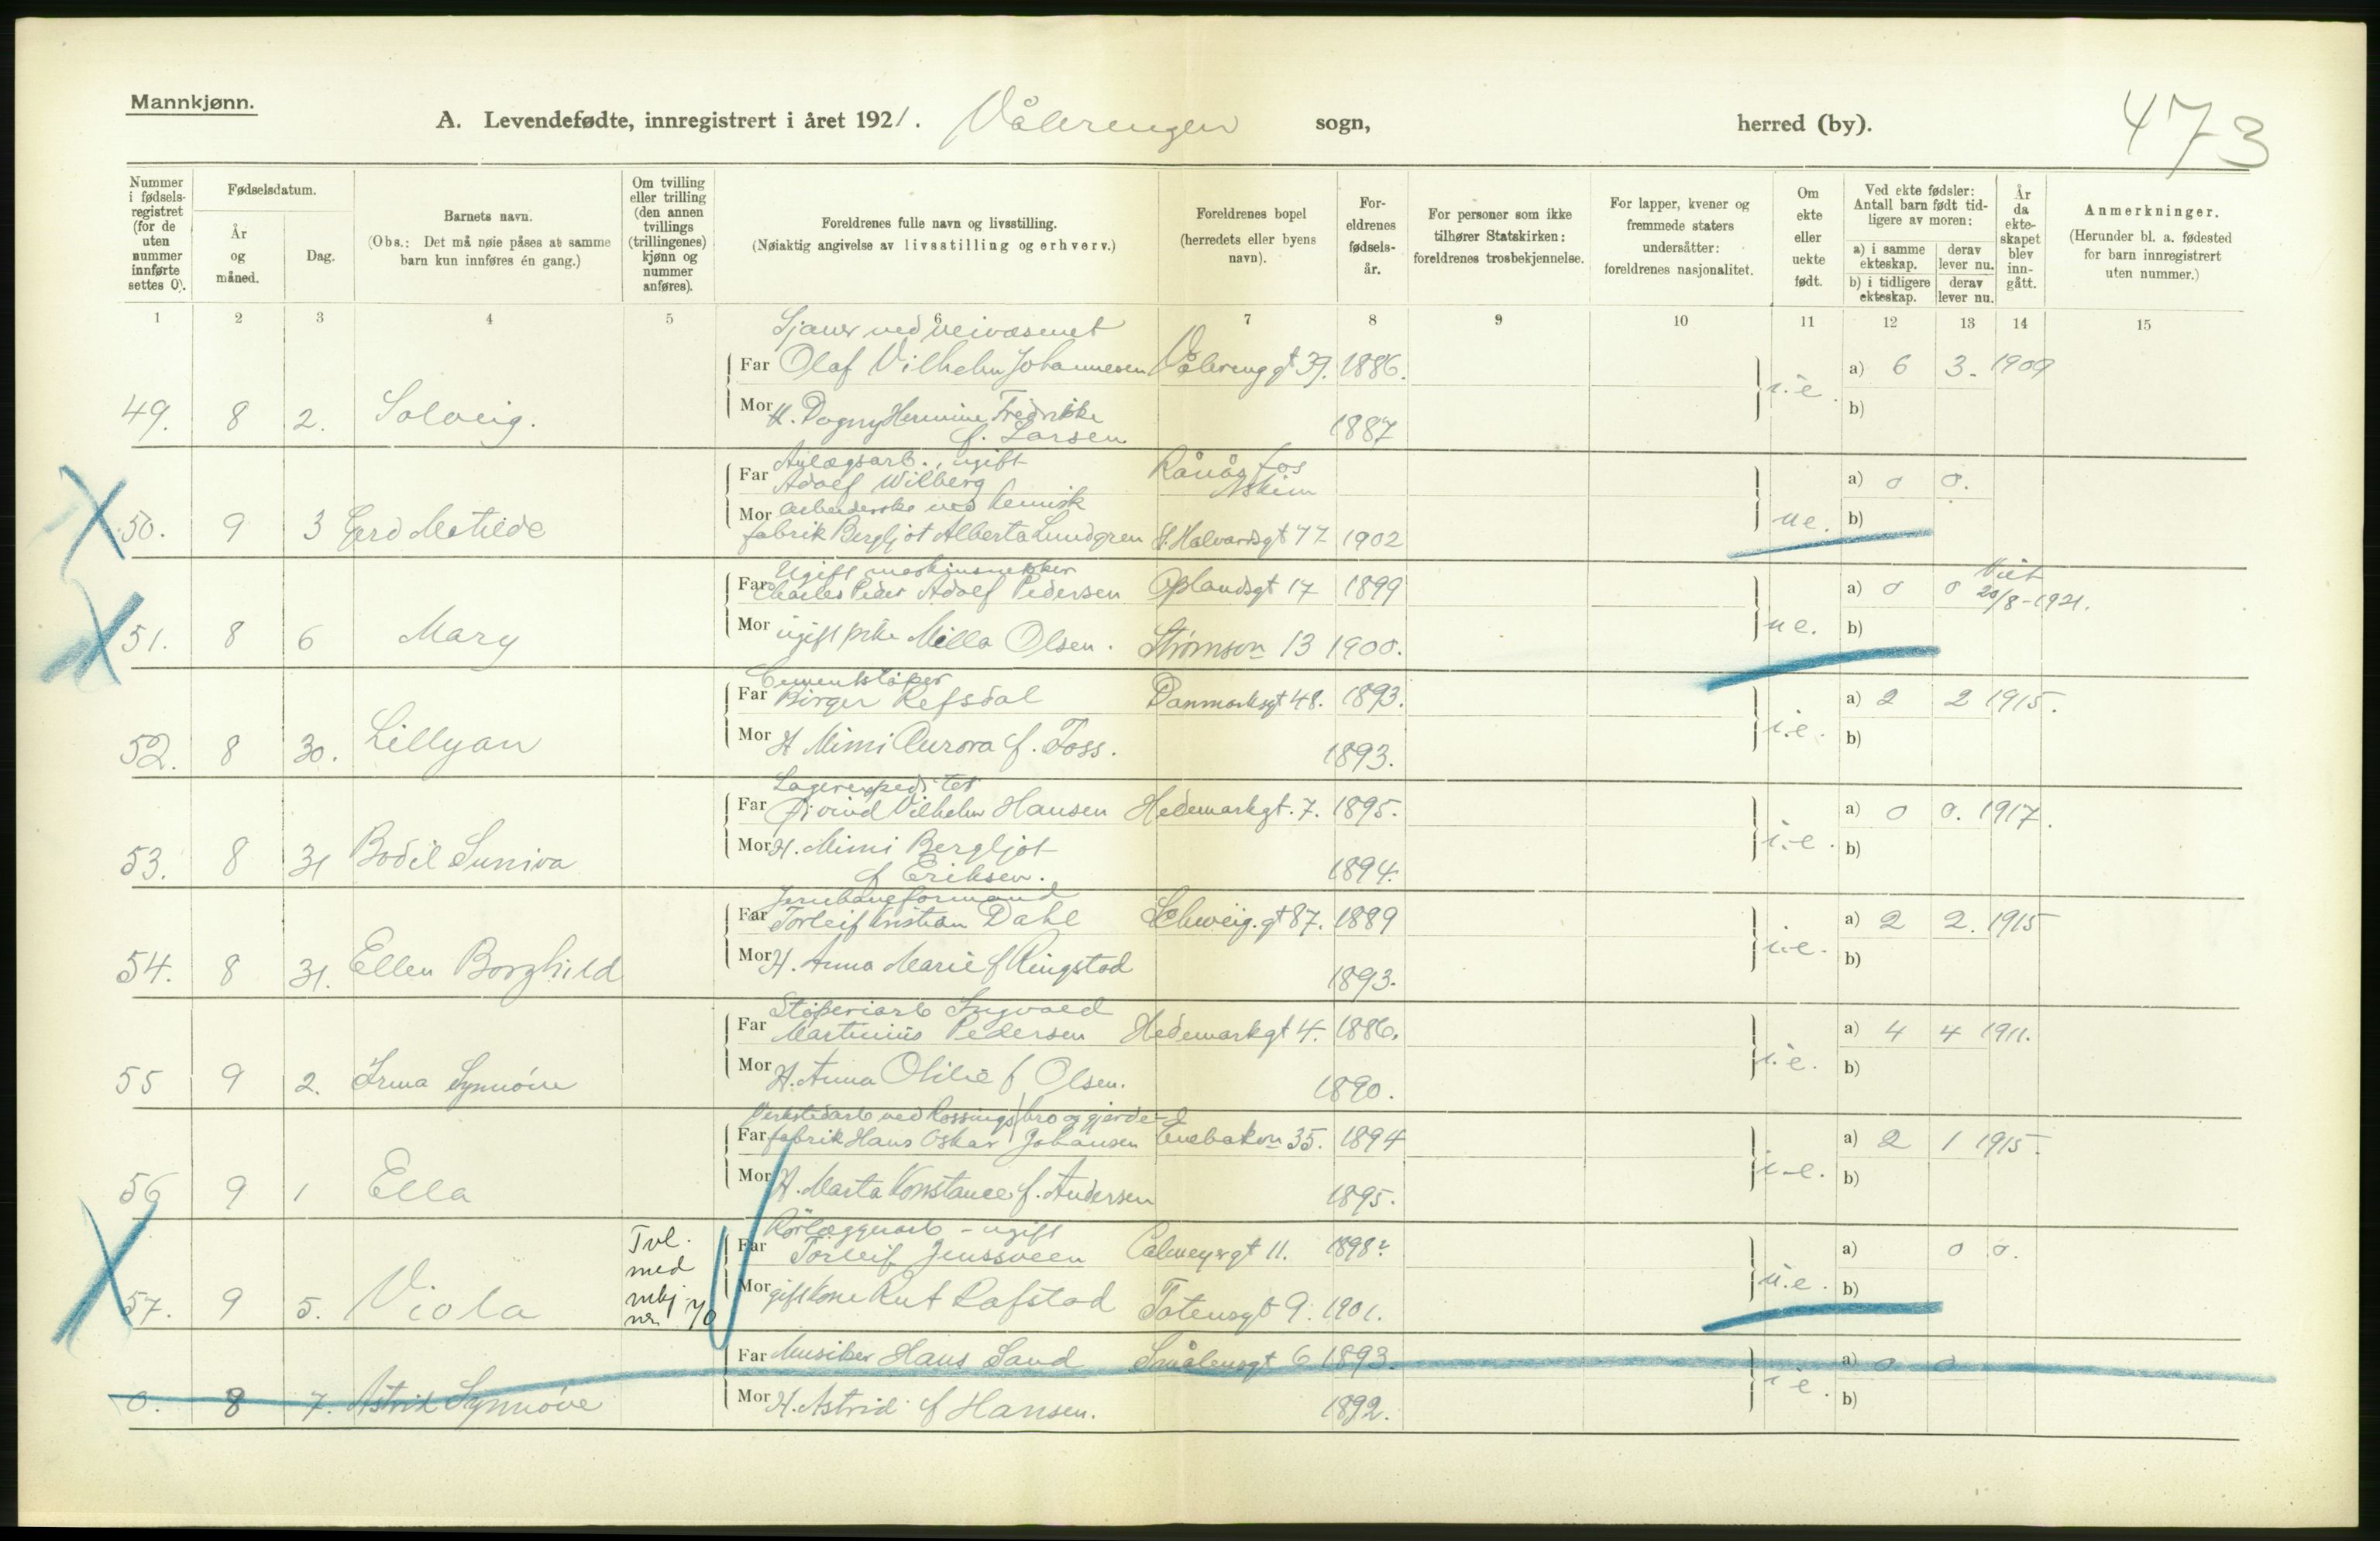 Mannkjønn.
A. Levendefødte, innregistrert i året 1921. Vålerengen sogn, herred (by). 473
Nummer i fødsels-registret (for de uten nummer innførte settes 0).
Fødselsdatum.
År og måned.
Dag.
Barnets navn.
(Obs.: Det må nøie påses at samme barn kun innføres én gang.)
Om tvilling eller trilling (den annen tvillings (trillingenes) kjønn og nummer anføres).
Foreldrenes fulle navn og livsstilling.
(Nøiaktig angivelse av livsstilling og erhverv.)
Foreldrenes bopel (herredets eller byens navn).
For-eldrenes fødsels-år.
For personer som ikke tilhører Statskirken: foreldrenes trosbekjennelse.
For lapper, kvener og fremmede staters undersåtter: foreldrenes nasjonalitet.
Om ekte eller uekte født.
Ved ekte fødsler: Antall barn født tid-ligere av moren:
a) i samme ekteskap. derav lever nu.
b) i tidligere ekteskap. derav lever nu.
År da ekte-skapet blev inn-gått.
Anmerkninger.
(Herunder bl. a. fødested for barn innregistrert uten nummer.)
1 2 3 4 5 6 7 8 9 10 11 12 13 14 15
Sjauer ved veivæsenet
Far Olaf Vilhelm Johannesen Vålerenggt 39. 1886. a) 6 3. 1909
49. 8 2. Solveig. Mor H. Dagny Hermine Fredrikke i.e. b)
f. Larsen 1887
Anlægsarb., ugift Rånåsfos
Far Adolf Wilberg Askim a) 0 0.
Mor arbeiderske ved kemisk
50. 9 3 Gerd Matilde fabrik Bergljot Alberta Lundgren St. Halvardsgt 77 1902 ue. b)
Ugift maskinsnekker Viet
Far Charles Peder Adolf Pedersen Oplandsgt 17 1899 a) 0 0 20/8-1921.
51. 8 6 Mary Mor ugift pike Milla Olsen. Strømsvn 13 1900. ue. b)
Cementstøper
Far Birger Refsdal Danmarksgt 48. 1893. a) 2 2 1915.
52. 8 30. Lillyan Mor H Mimi Aurora f. Foss. 1893. i.e. b)
Lagerexpeditør
Far Øivind Vilhelm Hansen Hedemarkgt. 7. 1895. a) 0 0. 1917.
53. 8 31 Bodil Suniva Mor H. Mimi Bergljot i.e. b)
f Eriksen. 1894.
Jernbaneformand
Far Torleif Kristian Dahl Schweig. gt 87. 1889 a) 2 2. 1915
54. 8 31. Ellen Borghild Mor H. Anna Marie f Ringstad 1893. i.e. b)
Støperiarb Ingvald
Far Martinius Pedersen Hedemarkgt 4. 1886. a) 4 4 1911.
55 9 2. Irma Synnöve Mor H. Anna Otilie f Olsen. 1890. i.e. b)
Verkstedarb ved Rossings bro og gjerde-
Far fabrik Hans Oskar Johansen Enebakvn 35. 1894 a) 2 1 1915.
56 9 1 Ella Mor H. Marta Konstance f. Andersen 1895. i.e. b)
Rörlæggerarb - ugift
Far Torleif Jenssveen Calmeyergt 11. 1898? a) 0 0.
57. 9 5. Viola Tvl. med mkj nr. 70 Mor gift kone Rut Rafstad Totensgt 9. 1901. u.e. b)
Far Musiker Hans Sand Smålensgt 6 1893. a) 0 0
0. 8 7. Astrid Synnöve Mor H. Astrid f Hansen. 1892. i e. b)